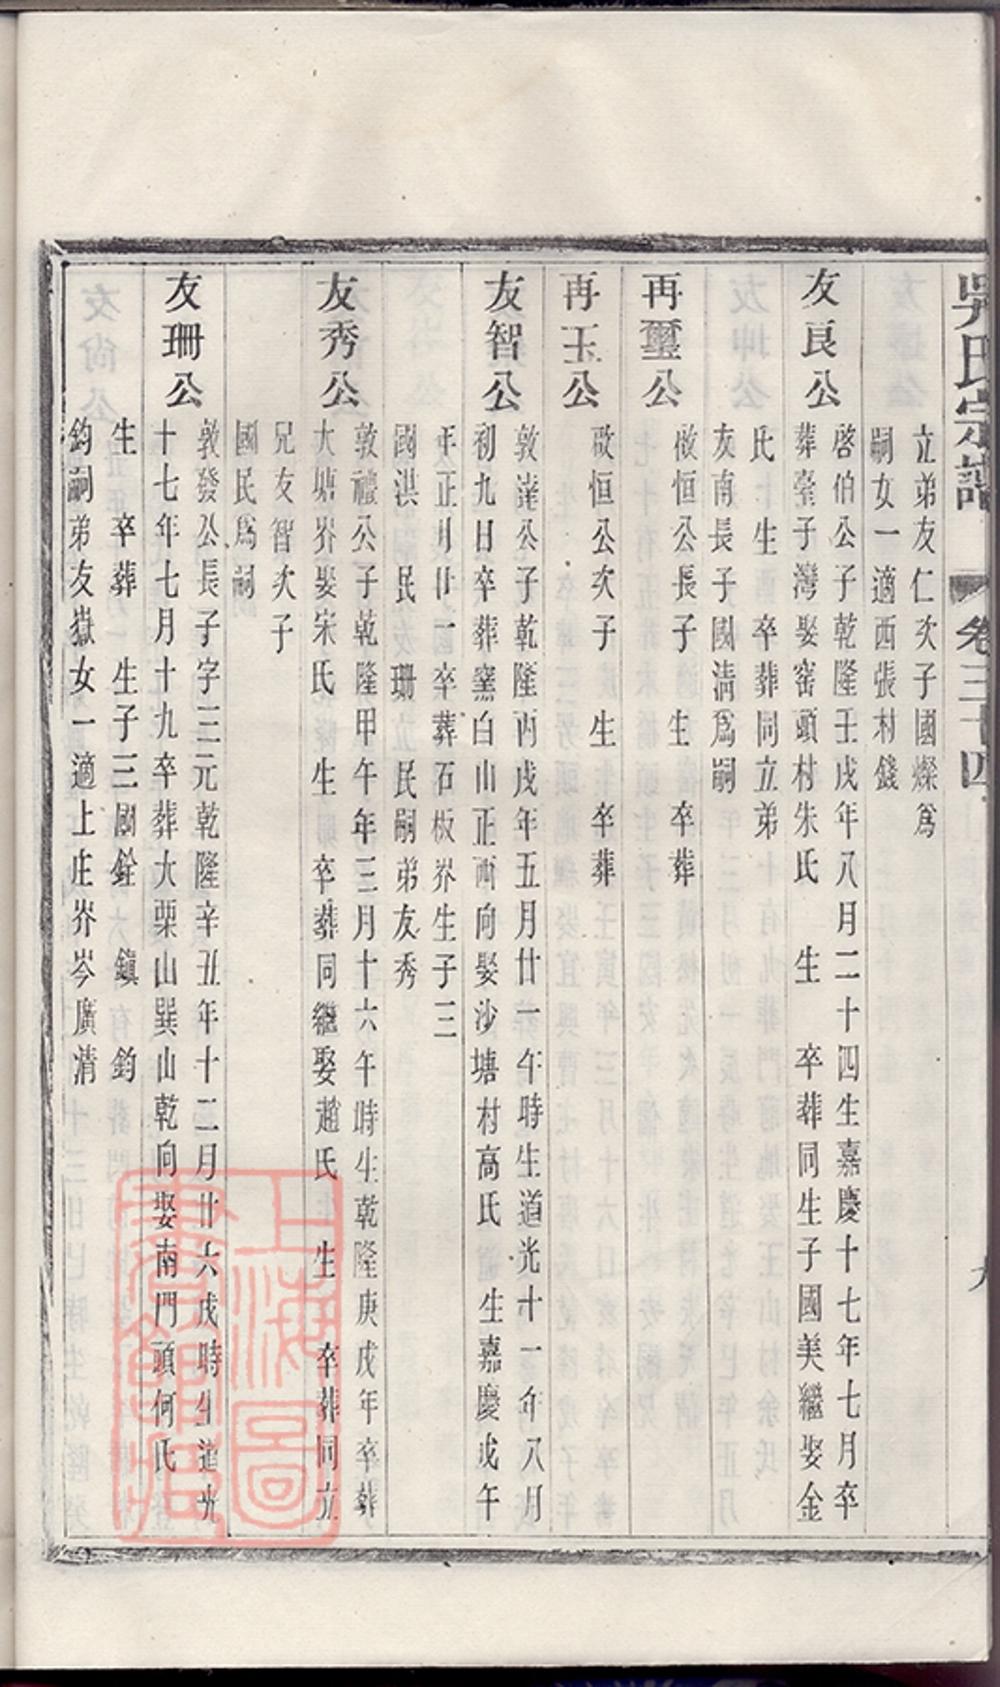 吳氏宗譜 卷三十四 九
立弟友仁次子國燦爲
嗣女一適西張村錢
友良公
啓伯公子乾隆壬戌年八月二十四生嘉慶十七年七月卒
葬臺子灣娶窰頭村朱氏 生 卒葬同生子國美繼娶金
氏 生 卒葬同立弟
友南長子國淸爲嗣
再璽公
啟恒公長子 生 卒葬
再玉公
啟恒公次子 生 卒葬
友智公
敦達公子乾隆丙戌年五月廿一午時生道光十一年八月
初九日卒葬窯白山正西向娶沙塘村高氏 生嘉慶戊午
年正月廿一卒葬石板岕生子三
國淇 民 珊 民嗣弟友秀
友秀公
敦禮公子乾隆甲午年三月十六午時生乾隆庚戌年卒葬
大塘岕娶宋氏 生 卒葬同繼娶趙氏 生 卒葬同立
兄友智次子
國民爲嗣
友珊公
敦發公長子字三元乾隆辛丑年十二月廿六戌時生道光
十七年七月十九卒葬大栗山巽山乾向娶南門頭何氏
生 卒葬 生子三國銓 鎭 鈞
鈞嗣弟友嶽女一適上庄岕岑廣清
上海圖書館藏